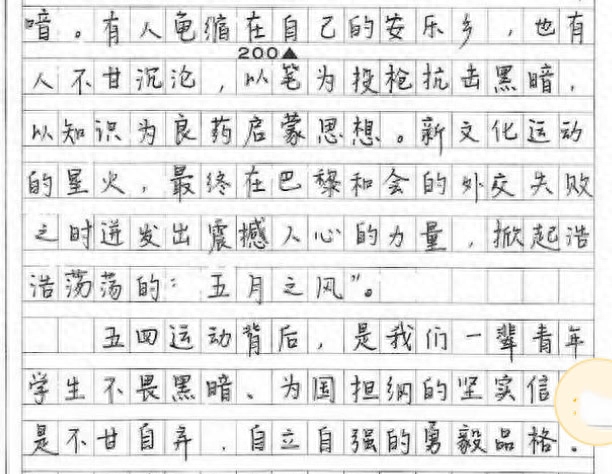 喑。有人龟缩在自己的安乐乡，也有
200▲
人不甘沉沦，以笔为投枪抗击黑暗，
以知识为良药启蒙思想。新文化运动
的星火，最终在巴黎和会的外交失败
之时迸发出震撼人心的力量，掀起浩
浩荡荡的“五月之风”。
五四运动背后，是我们一辈青年
学生不畏黑暗、为国担纲的坚实信
是不甘自弃、自立自强的勇毅品格。